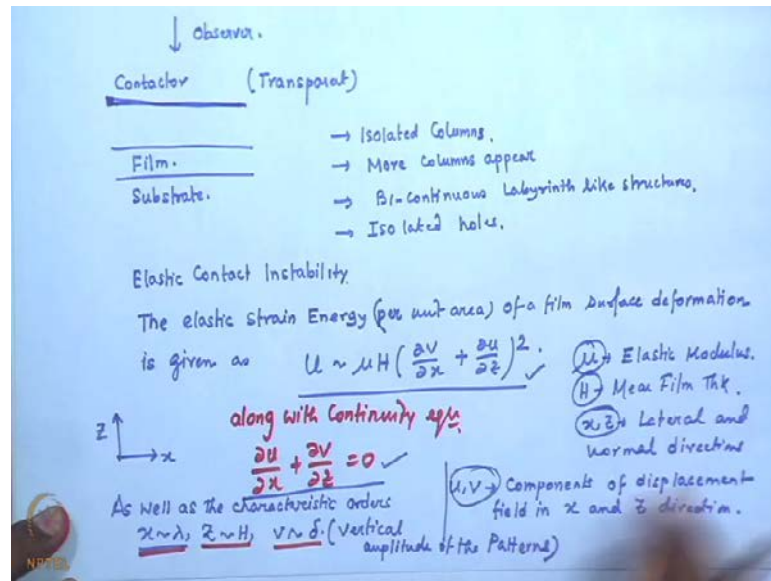 ↓ Observer.
Contactor (Transparat)
→ Isolated Columns.
Film. → More Columns appear
Substrate. → Bi-continuous Labyrinth like structures.
→ Isolated holes.
Elastic Contact Instability
The elastic strain Energy (per unit area) of a film surface deformation
is given as U ~ μH (∂v/∂x + ∂u/∂z)². ✓
μ → Elastic Modulus.
H → Mean Film Thk.
x, z → Lateral and
normal directions
z ↑ → x
along with Continuity eqn.
∂u/∂x + ∂v/∂z = 0 ✓
As well as the characteristic orders
x~λ, z~H, v~δ. (vertical
amplitude of the Patterns)
u, v → Components of displacement
field in x and z direction.
NPTEL